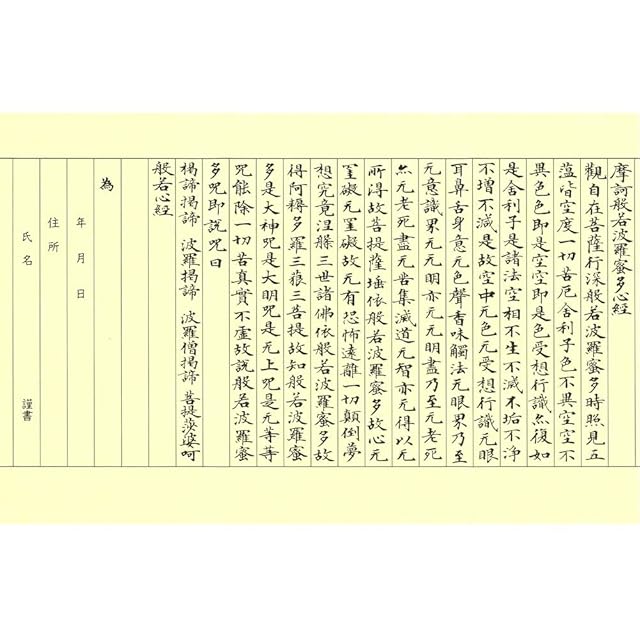 摩訶般若波羅蜜多心經
觀自在菩薩行深般若波羅蜜多時照見五
蘊皆空度一切苦厄舍利子色不異空空不
異色色即是空空即是色受想行識亦復如
是舍利子是諸法空相不生不滅不垢不浄
不增不減是故空中无色无受想行識无眼
耳鼻舌身意无色聲香味觸法无眼界乃至
无意識界无无明亦无无明盡乃至无老死
亦无老死盡无苦集滅道无智亦无得以无
所得故菩提薩埵依般若波羅蜜多故心无
罣礙无罣礙故无有恐怖遠離一切顛倒夢
想究竟涅槃三世諸佛依般若波羅蜜多故
得阿耨多羅三藐三菩提故知般若波羅蜜
多是大神呪是大明呪是无上呪是无等等
呪能除一切苦真實不虛故說般若波羅蜜
多呪即說呪曰
揭諦揭諦 波羅揭諦 波羅僧揭諦 菩提薩婆呵
般若心經
為
年 月 日
住所
氏名 謹書